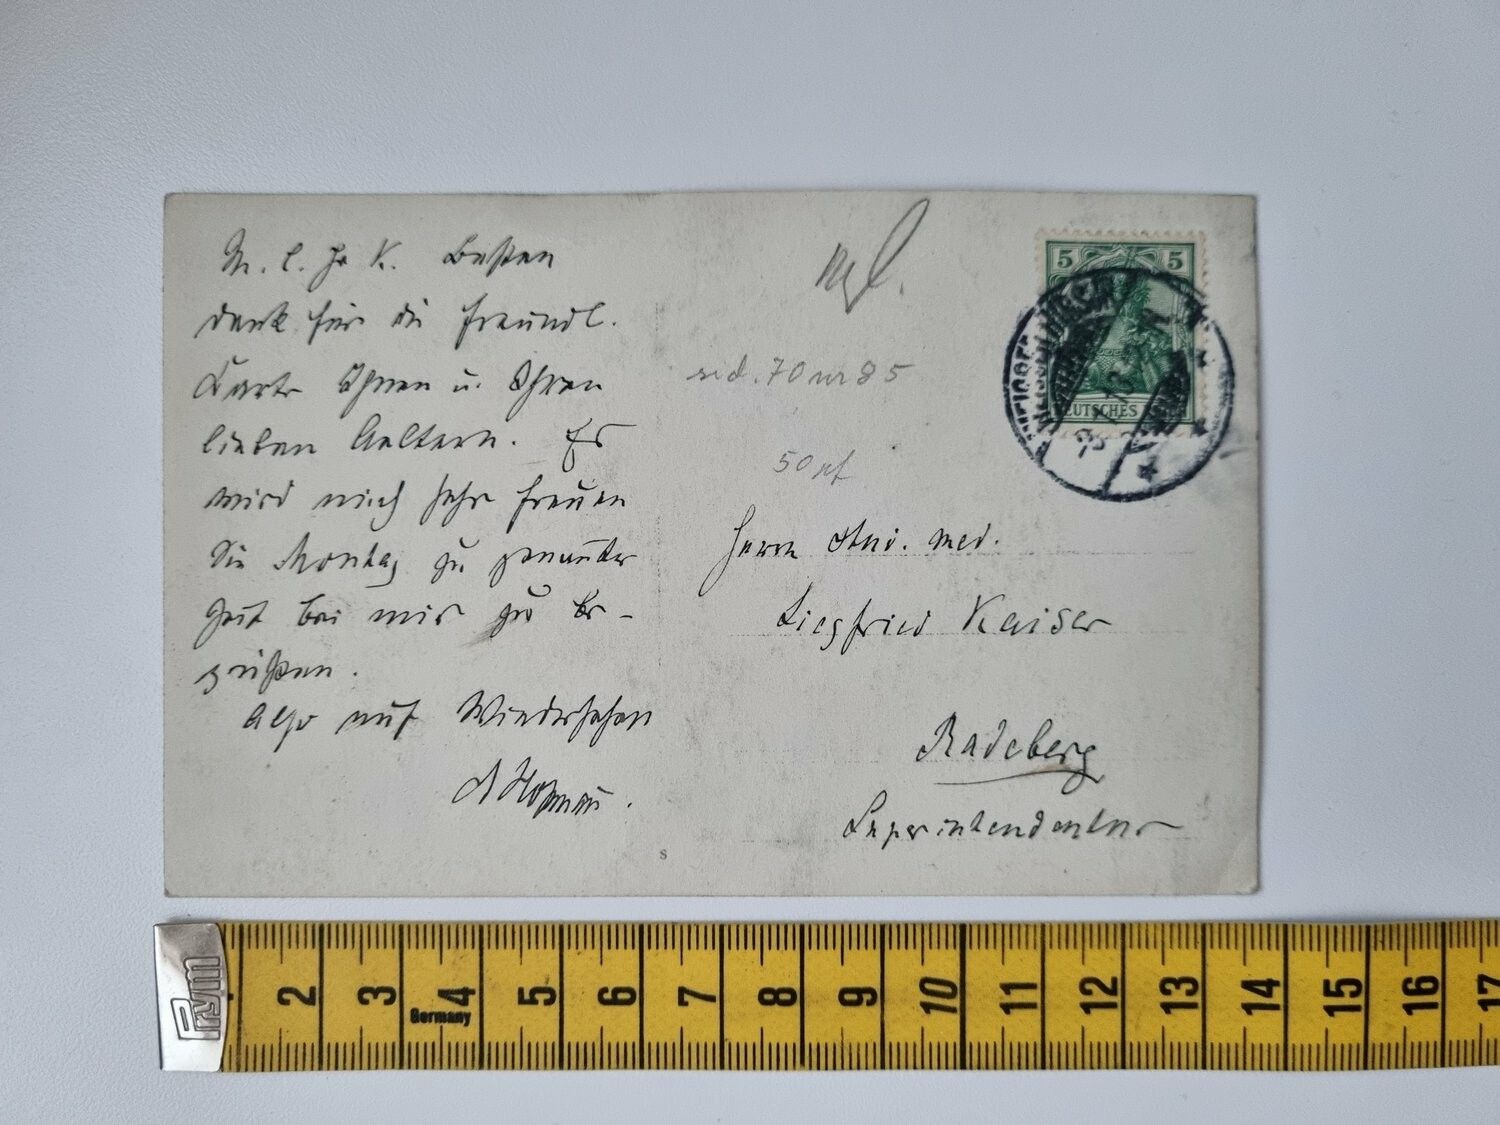 M. l. Hr K. Besten
Dank für die freundl.
Karte Ihnen u. Ihren
lieben Aeltern. Es
wird mich sehr freuen
Sie Montag zu genannter
Zeit bei mir zu be-
grüßen.
Also auf Wiedersehen
50 Pf
Herrn stud. med.
Siegfried Kaiser
Radeberg
Superintendentur
5 5
DEUTSCHES
S
Prym
Germany
2 3 4 5 6 7 8 9 10 11 12 13 14 15 16 17